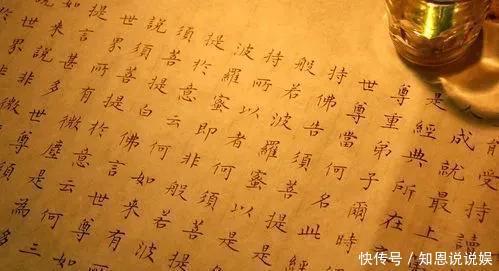 有受持讀
人成就最上
是經典所在
尊重弟子爾時
世尊當何名此
持佛告須菩提
般若波羅蜜以是
持所以者何須
波羅蜜即非般若波
提於意云何如來有
須菩提白佛言世尊
說須菩提於意云何三
世界所有微塵是為多
提言甚多世尊
如來說世界非微
快传号 / 知恩说说娱